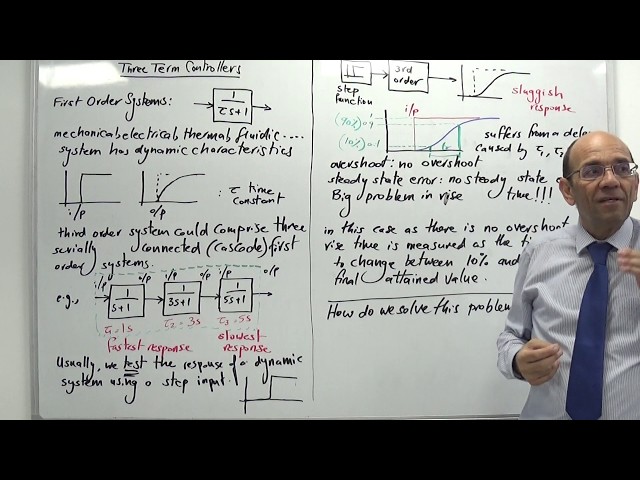 Three Term Controllers
First Order Systems:
1
τs+1
mechanical electrical thermal fluidic ....
system has dynamic characteristics
: τ time
constant
i/p
o/p
third order system could comprise three
serially connected (cascade) first
order systems.
i/p o/p i/p o/p i/p o/p
e.g.,
1
s+1
1
3s+1
1
5s+1
τ₁=1s τ₂=3s τ₃=5s
fastest response
slowest
response
Usually, we test the response of a dynamic
system using a step input.
3rd
order
step
function
sluggish
response
i/p
(90%) 0.9
(10%) 0.1
tr
suffers from a
caused by τ₁, τ₂
overshoot: no overshoot
steady state error: no steady state
Big problem in rise time!!!
in this case as there is no overshoot
rise time is measured as the
to change between 10% and
final attained value.
How do we solve this problem